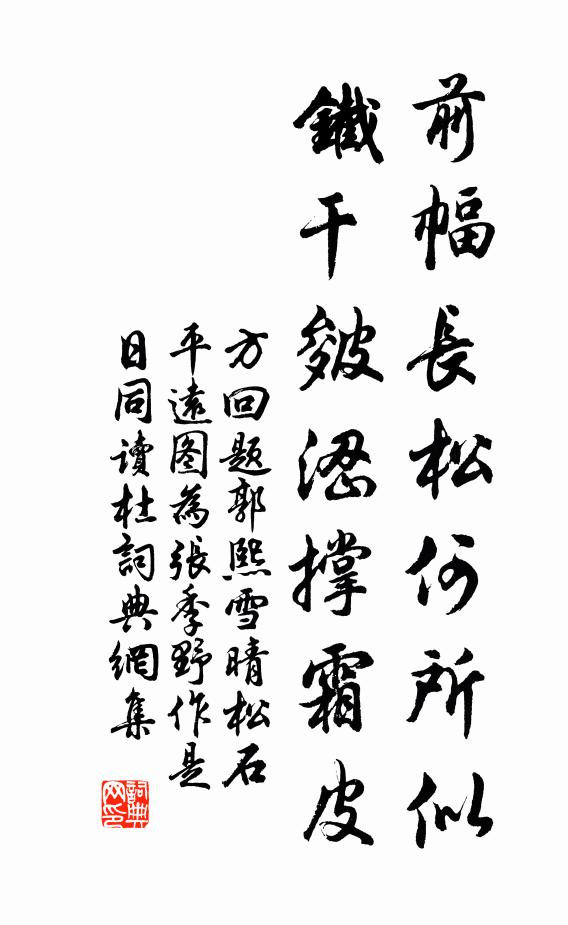 前幅長松何所似
鐵干皴澀撐霜皮
方回题郭熙雪晴松石
平遠图為張季野作是
日同讀杜詞典網集
詞典网印